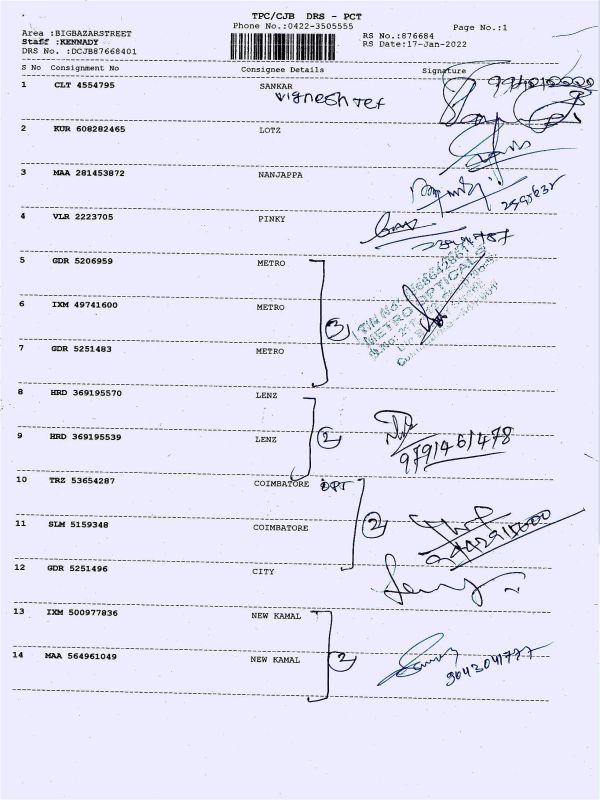 TPC/CJB DRS - PCT
Phone No.:0422-3505555
Page No.:1
Area :BIGBAZARSTREET
Staff :KENNADY
DRS No. :DCJB87668401
RS No.:876684
RS Date:17-Jan-2022
S No Consignment No Consignee Details Signature
1 CLT 4554795 SANKAR
vignesh TEX
2 KUR 608282465 LOTZ
3 MAA 281453872 NANJAPPA
4 VLR 2223705 PINKY
5 GDR 5206959 METRO
6 IXM 49741600 METRO
3
METRO OPTICALS
7 GDR 5251483 METRO
8 HRD 369195570 LENZ
9 HRD 369195539 LENZ 2
9791461478
10 TRZ 53654287 COIMBATORE OPT
11 SLM 5159348 COIMBATORE 2
9442915600
12 GDR 5251496 CITY
13 IXM 500977836 NEW KAMAL
14 MAA 564961049 NEW KAMAL 2
9043041777